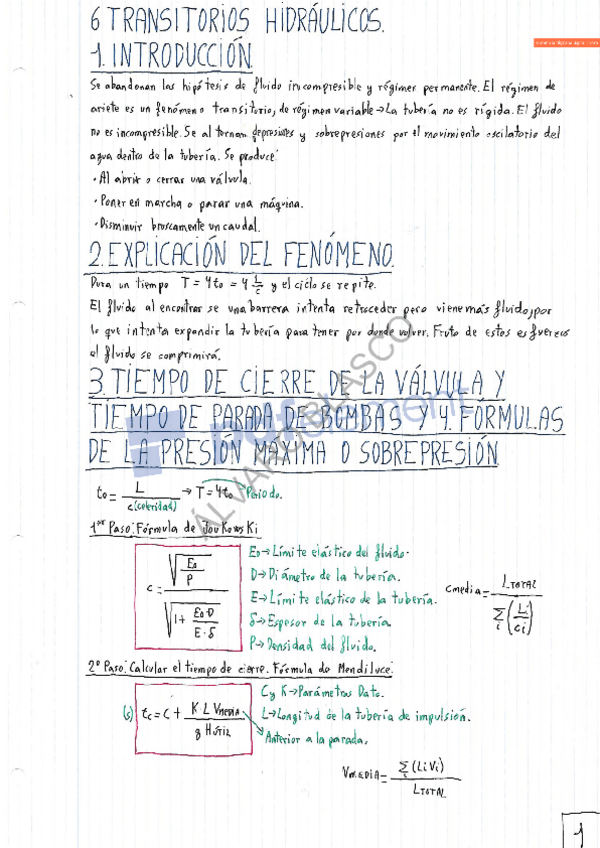 6 TRANSITORIOS HIDRÁULICOS.
1. INTRODUCCIÓN
Se abandonan las hipótesis de fluido incompresible y régimen permanente. El régimen de
ariete es un fenómeno transitorio, de régimen variable → La tubería no es rígida. El fluido
no es incompresible. Se alternan depresiones y sobrepresiones por el movimiento oscilatorio del
agua dentro de la tubería. Se produce:
· Al abrir o cerrar una válvula.
· Poner en marcha o parar una máquina.
· Disminuir bruscamente un caudal.
2. EXPLICACIÓN DEL FENÓMENO.
Dura un tiempo T = 4t₀ = 4 L/c y el ciclo se repite.
El fluido al encontrarse una barrera intenta retroceder pero viene más fluido, por
lo que intenta expandir la tubería para tener por donde volver. Fruto de estos esfuerzos
el fluido se comprimirá.
3. TIEMPO DE CIERRE DE LA VÁLVULA Y
TIEMPO DE PARADA DE BOMBAS Y 4. FÓRMULAS
DE LA PRESIÓN MÁXIMA O SOBREPRESIÓN
t₀ = L / c (celeridad) → T = 4t₀ Periodo.
1er Paso: Fórmula de Joukowski
c = √(E₀/ρ) / √(1 + E₀·D / E·δ)
E₀ → Límite elástico del fluido.
D → Diámetro de la tubería.
E → Límite elástico de la tubería.
δ → Espesor de la tubería.
ρ → Densidad del fluido.
Cmedia = LTOTAL / Σi (Li/ci)
2º Paso: Calcular el tiempo de cierre. Fórmula de Mendiluce.
(s) tc = C + K L VMEDIA / g HÚTIL
C y K → Parámetros Dato.
L → Longitud de la tubería de impulsión.
Anterior a la parada.
VMEDIA = Σi (Li Vi) / LTOTAL
1
ÁLVARO BLASCO